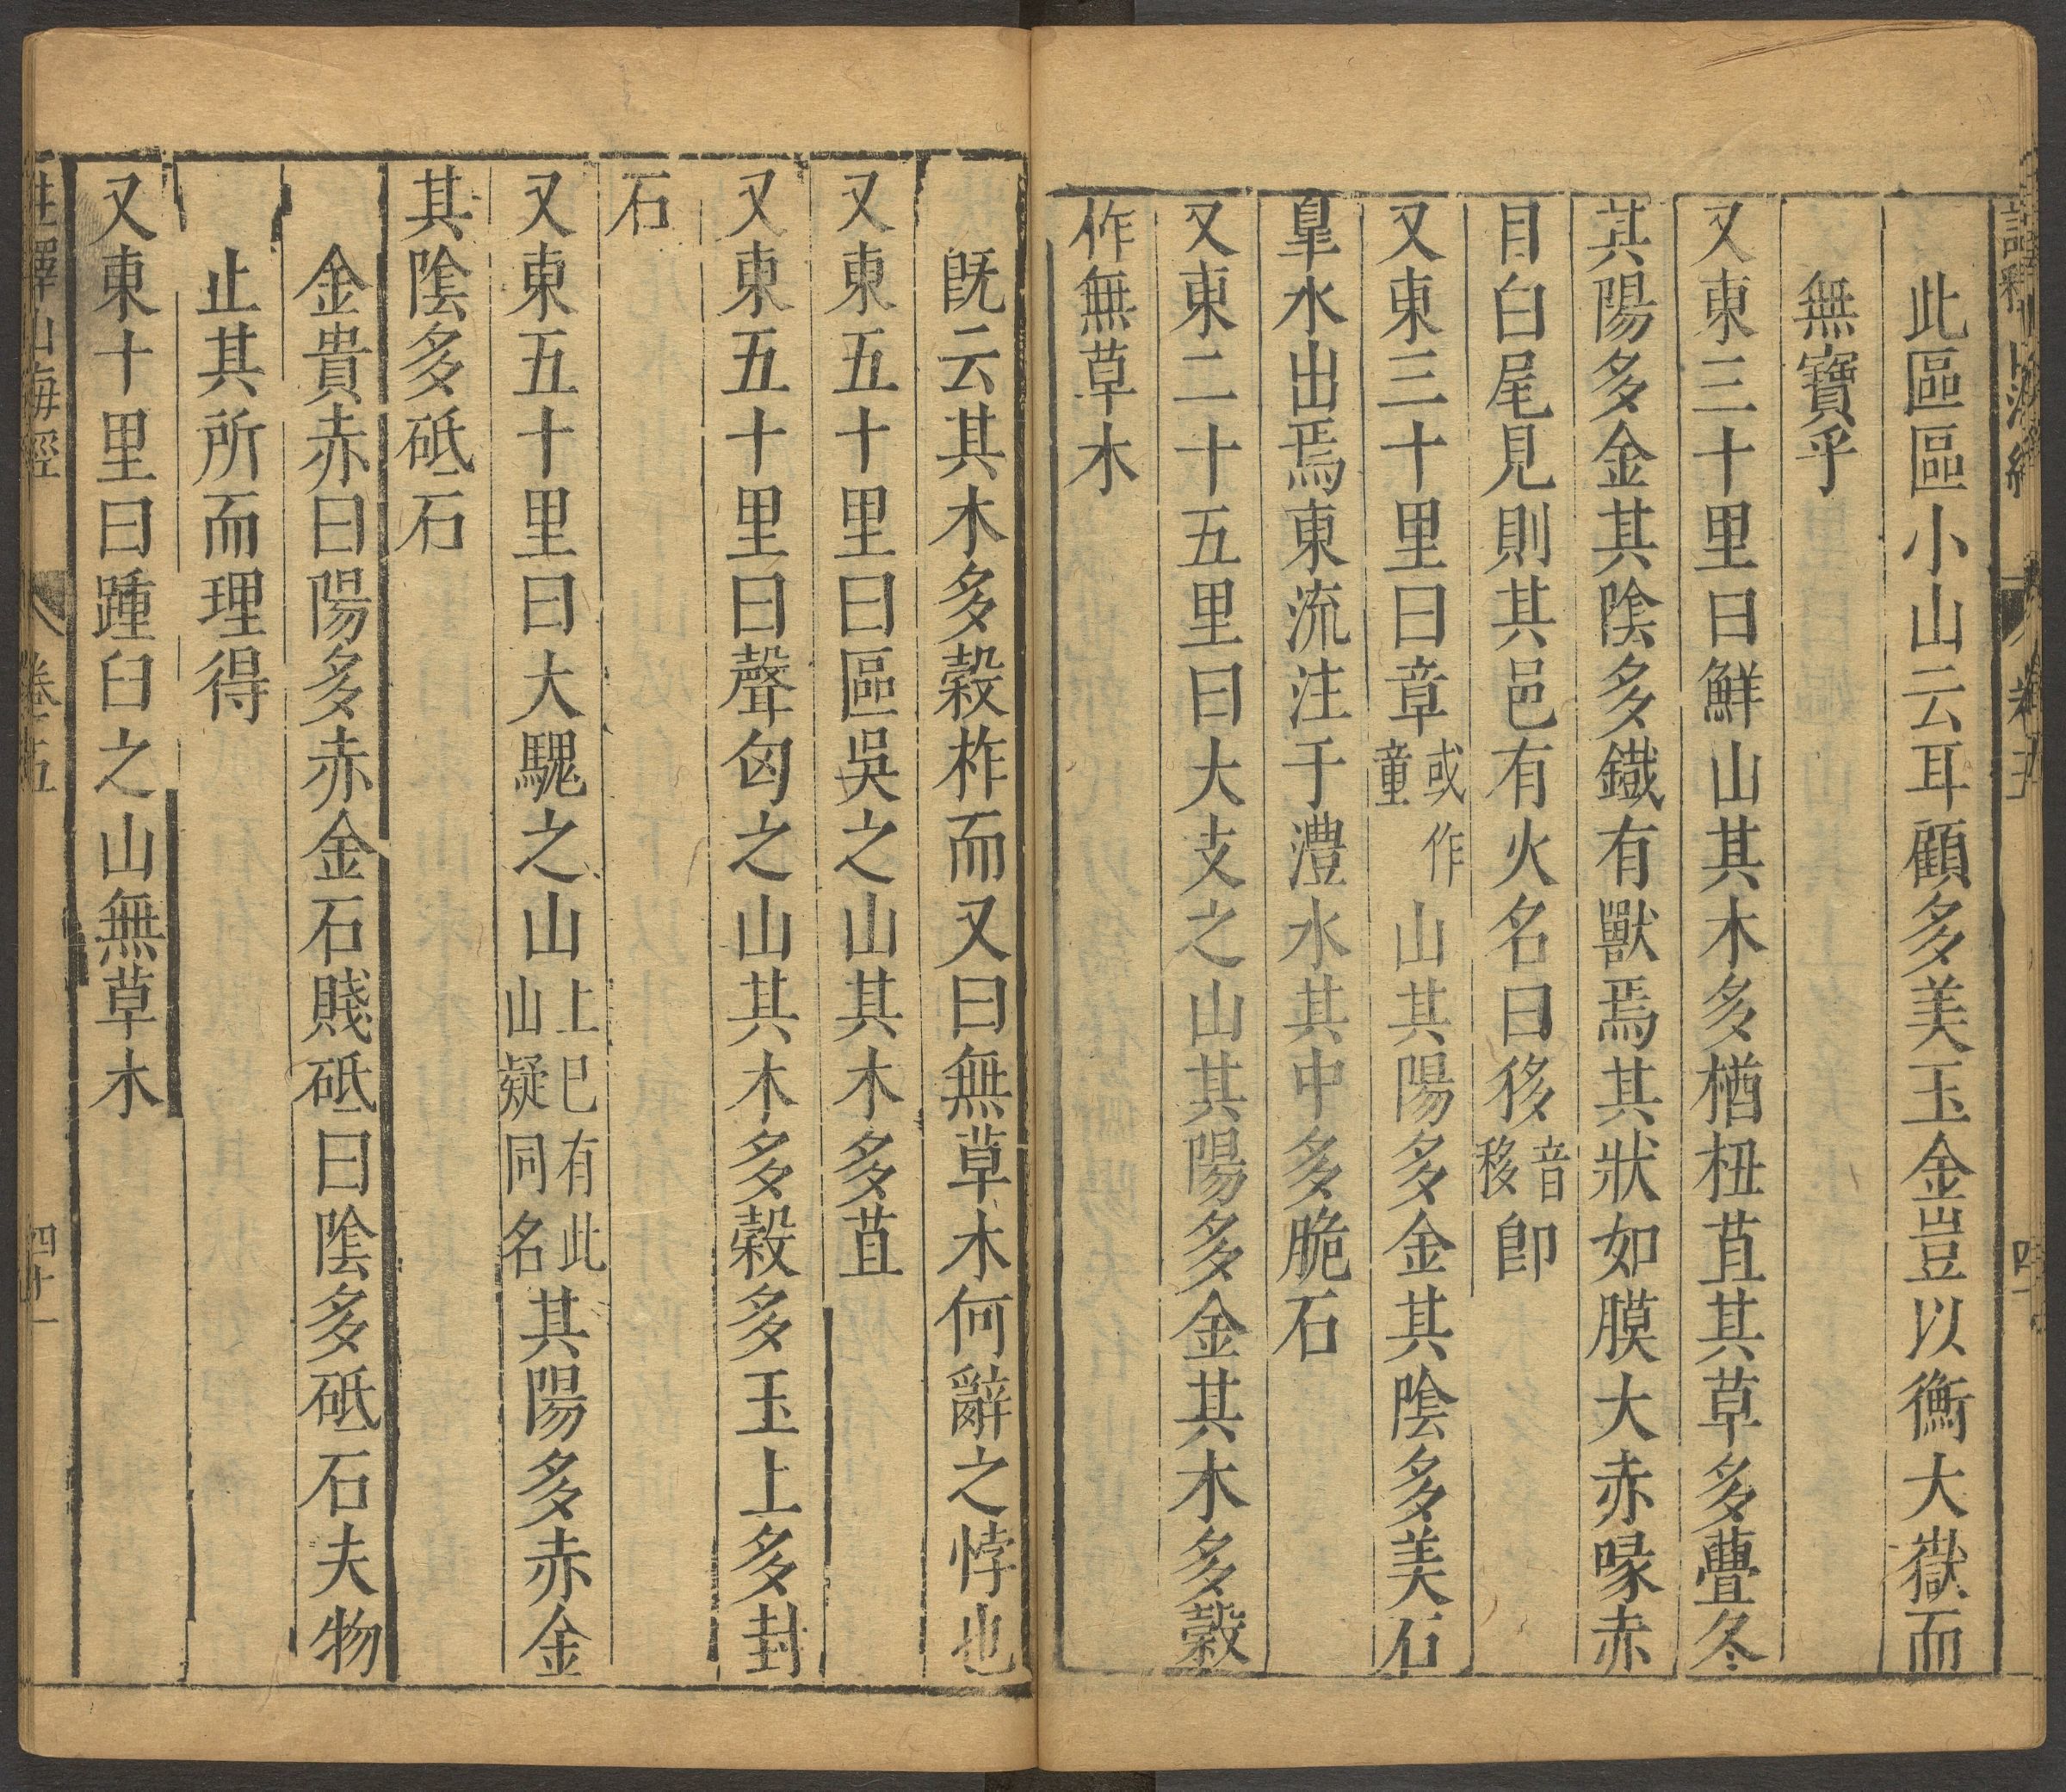 此區區小山云耳顧多美玉金豈以衡大嶽而
無寶乎
又東三十里曰鮮山其木多楢杻苴其草多虋冬
其陽多金其陰多鐵有獸焉其狀如膜大赤喙赤
目白尾見則其邑有火名曰𤝻音移即
又東三十里曰章或作童山其陽多金其陰多美石
皐水出焉東流注于澧水其中多脆石
又東二十五里曰大支之山其陽多金其木多榖
作無草木
既云其木多榖柞而又曰無草木何辭之悖也
又東五十里曰區吳之山其木多苴
又東五十里曰聲匈之山其木多榖多玉上多封
石
又東五十里曰大騩之山上巳有此山疑同名其陽多赤金
其陰多砥石
金貴赤曰陽多赤金石賤砥曰陰多砥石夫物
止其所而理得
又東十里曰踵臼之山無草木
山海經 卷五 四十一